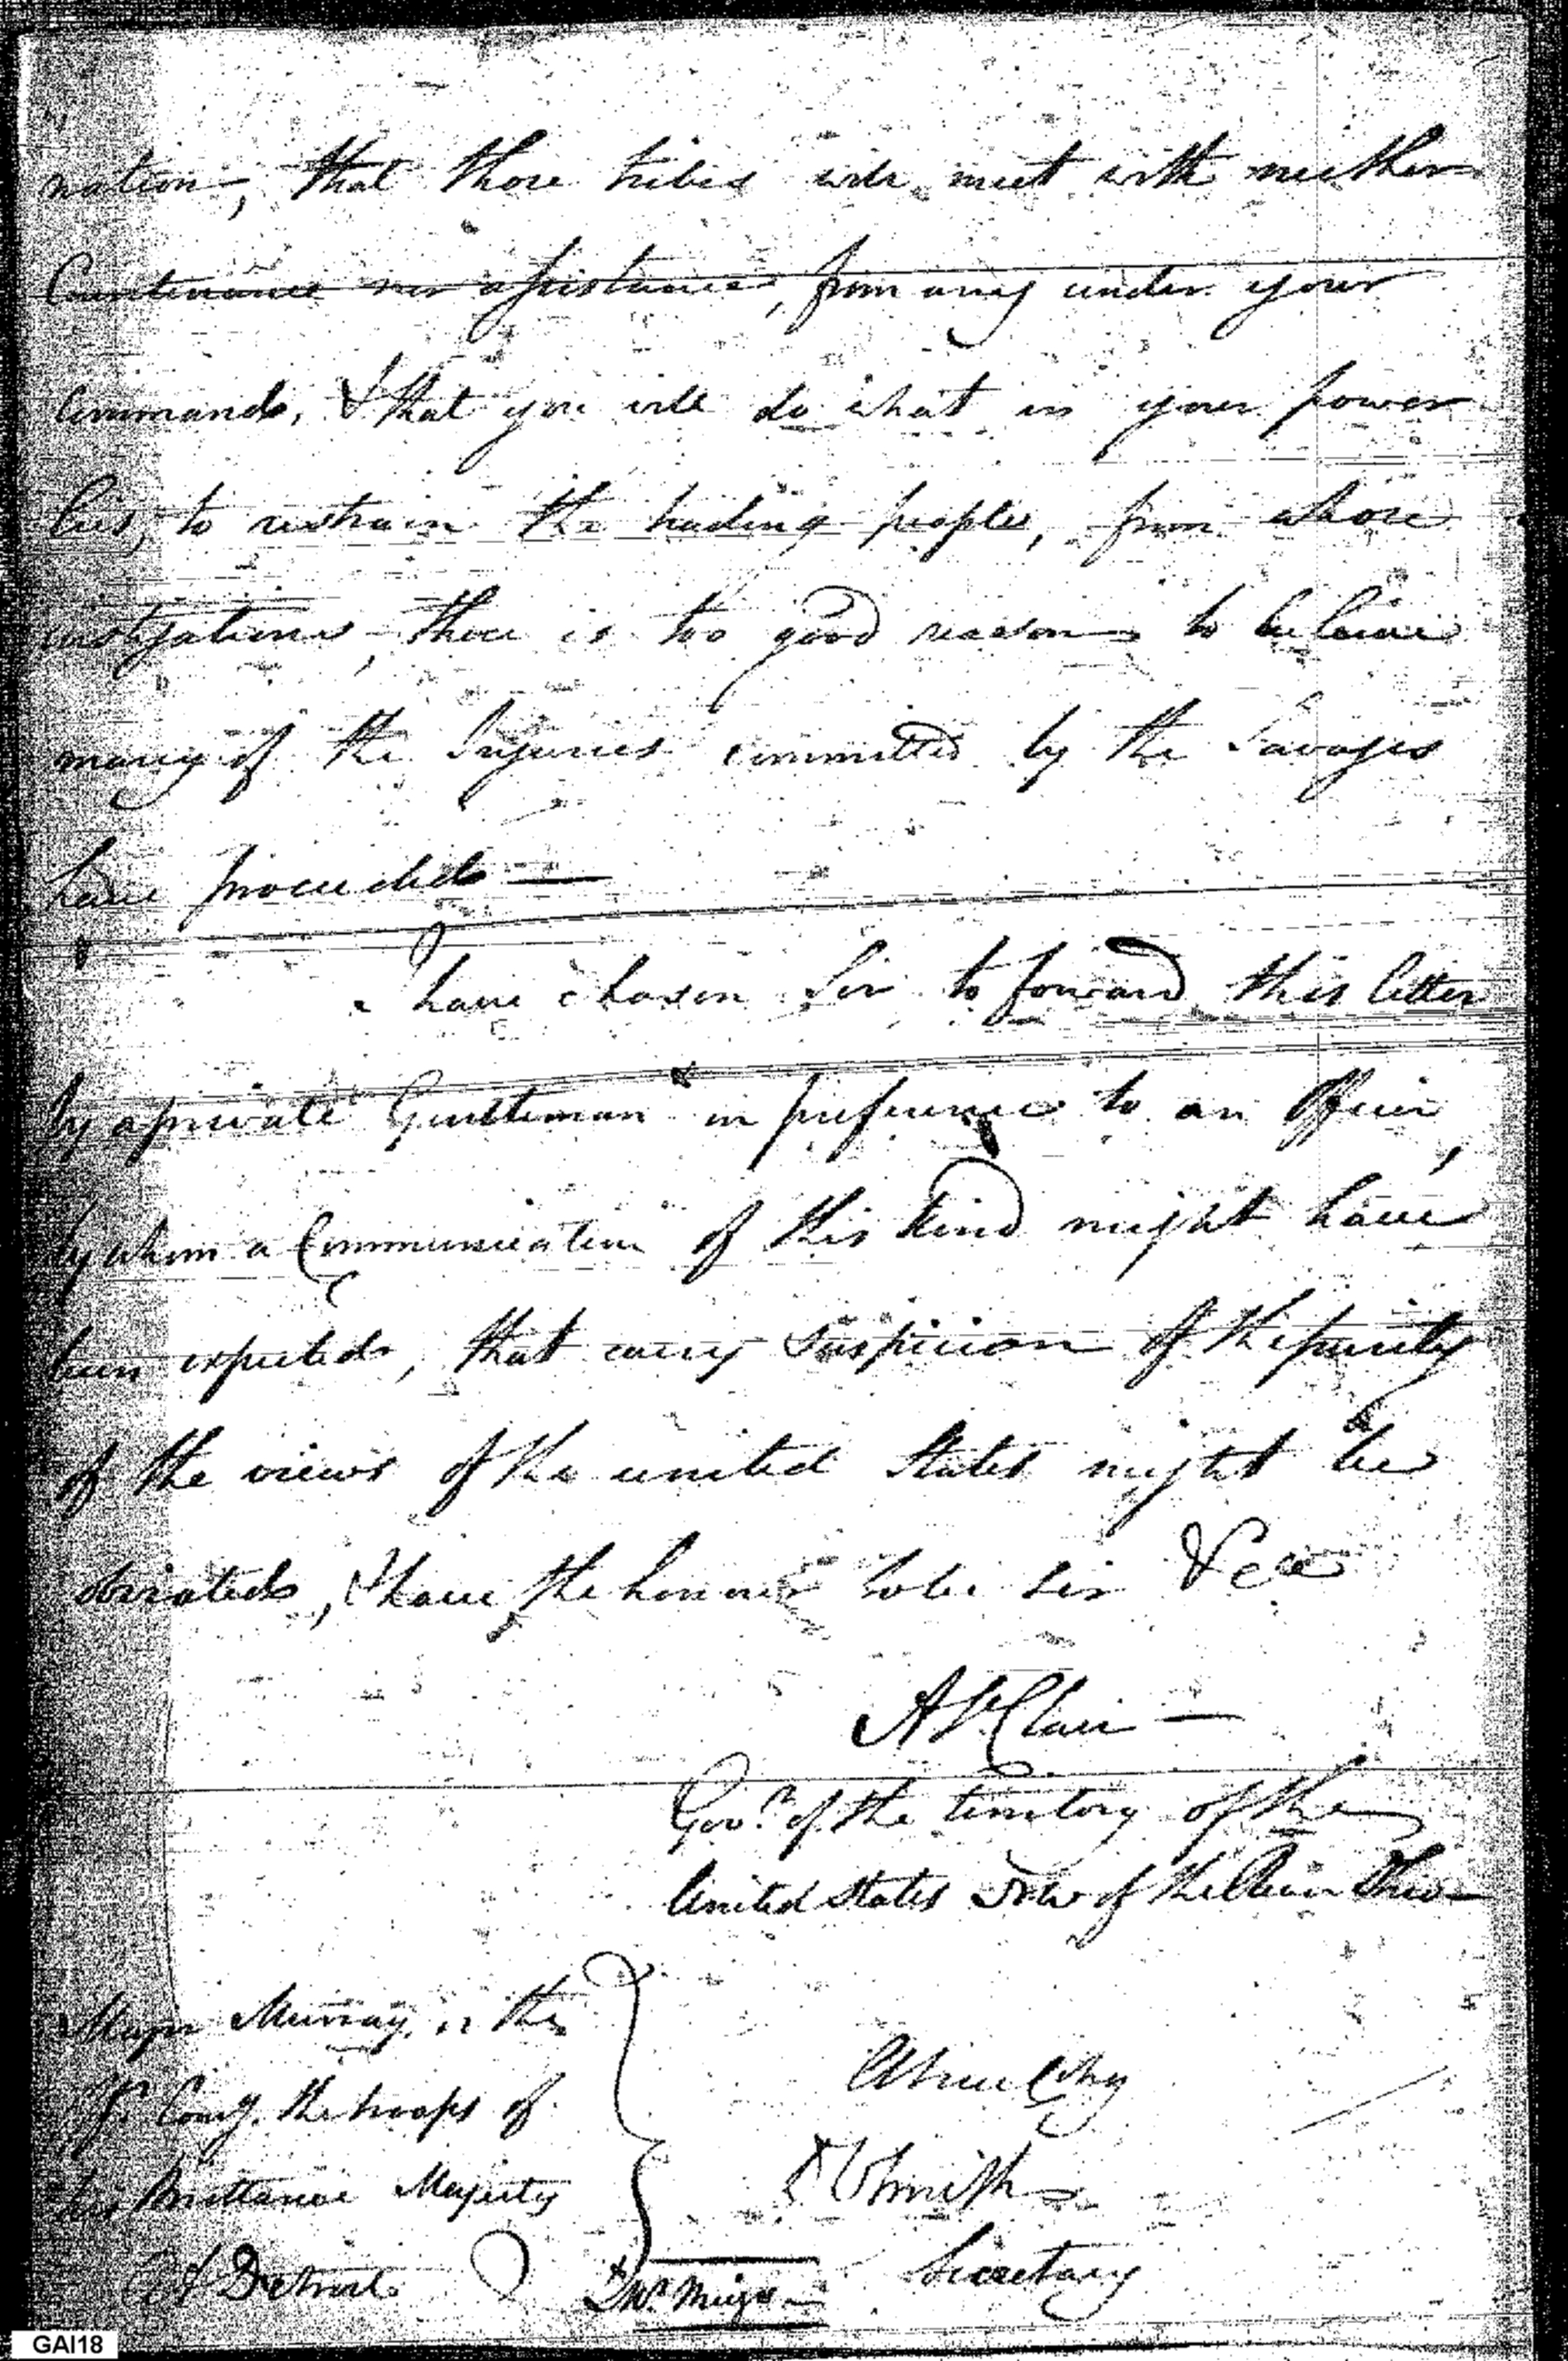 nation, that those tribes will meet with neither
Countenance nor assistance, from any under your
command, & that you will do what in your power
lies, to restrain the trading people, from whose
instigations, there is too good reason to beleive
many of the Injuries committed by the Savages
have proceeded —
I have chosen Sir to forward this letter
by a private Gentleman in preference to an Officer,
by whom a Communication of this kind might have
been expected, that every Suspicion of the purity
of the views of the united States might be
obviated, I have the honour to be Sir &ca
A St Clair —
Govr. of the territory of the
United States NW of the River Ohio —
Major Murray, or the
Offr. Comg. the troops of
his Brittanic Majesty
At Detroit
A true Copy
Smith
Secretary
GAI18